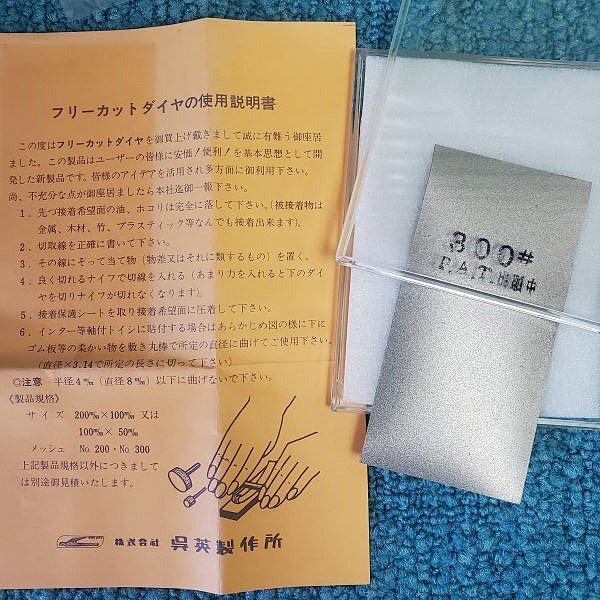 フリーカットダイヤの使用説明書
この度はフリーカットダイヤを御買上げ戴きまして誠に有難う御座居
ました。この製品はユーザーの皆様に安価!便利!を基本思想として開
発した新製品です。皆様のアイデアを活用され多方面に御利用下さい。
尚、不充分な点が御座居ましたら本社迄御一報下さい。
1. 先づ接着希望面の油、ホコリは完全に落して下さい。(被接着物は
金属、木材、竹、プラスティック等なんでも接着出来ます)。
2. 切取線を正確に書いて下さい。
3. その線にそって当て物(物差又はそれに類するもの)を置く。
4. 良く切れるナイフで切線を入れる(あまり力を入れると下のダイ
ヤを切りナイフが切れなくなります)。
5. 接着保護シートを取り接着希望面に圧着して下さい。
6. インター等軸付トイシに貼付する場合はあらかじめ図の様に下に
ゴム板等の柔かい物を敷き丸棒で所定の直径に曲げてご使用下さい。
(直径×3.14で所定の長さに切って下さい)
◎注意 半径4㎜(直径8㎜)以下に曲げないで下さい。
《製品規格》
サイズ 200㎜×100㎜ 又は
100㎜× 50㎜
メッシュ No.200・No.300
上記製品規格以外につきまして
は別途御見積いたします。
株式会社 呉英製作所
300#
P.A.T.出願中